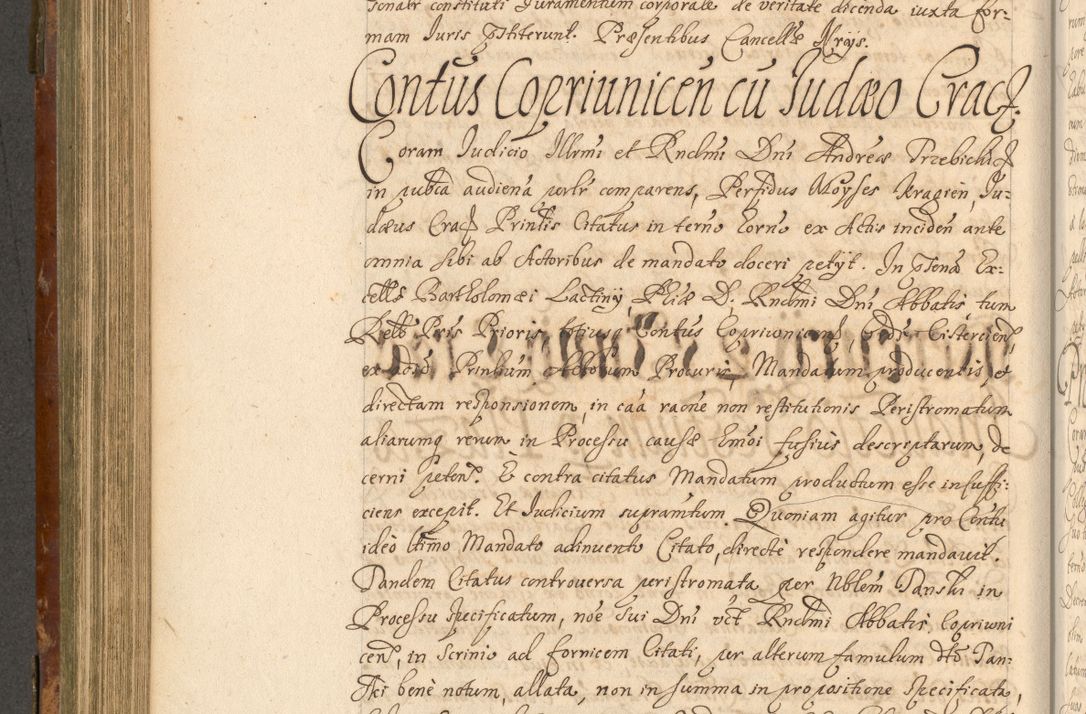 sonalr constituti Juramentum corporale de veritate dicenda iuxta for:
mam Iuris pstiterunt. Præsentibus Cancellæ Nrijs.
Contus Copriunicen cu Iudæo Crac.
Coram Iudicio Illrmi et Rndmi Dni Andreæ Trzebicki
in pubca audiena prlr comparens, Perfidus Moyses Iu:
dæus Crac Prinlis Citatus in terno Torno ex Actis inciden ante
omnia sibi ab Actoribus de mandato doceri petijt. In psona Ex:
cellis Bartholomæi Lactinij, D. Rndmi Dni Abbatis tum
Relb Pris Prioris totiusq Contus Copriunicen, Ordis Cistercien
ex adio Prinlium Actorum Procurir, Mandatum producentis, et
directam responsionem, in caa raone non restitutionis Peristromatum
aliarumq rerum in Processu causæ Emoi fusius descreptarum, de
cerni peten. E contra citatus Mandatum productum esse insuffi:
ciens excepit. Et Iudicium supramtum Quoniam agitur pro Contu
ideo ltimo Mandato adinuento Citato, directe respondere mandavit.
Tandem Citatus controversa peristromata per Nblem Panski in
Processu specificatum, noe sui Dni vct Rndmi Abbatis Copriuni
cen, in Scrinio ad fornicem Citati, per alterum famulum dto Pan:
ski bene notum, allata, non in summa in propositione specificata,